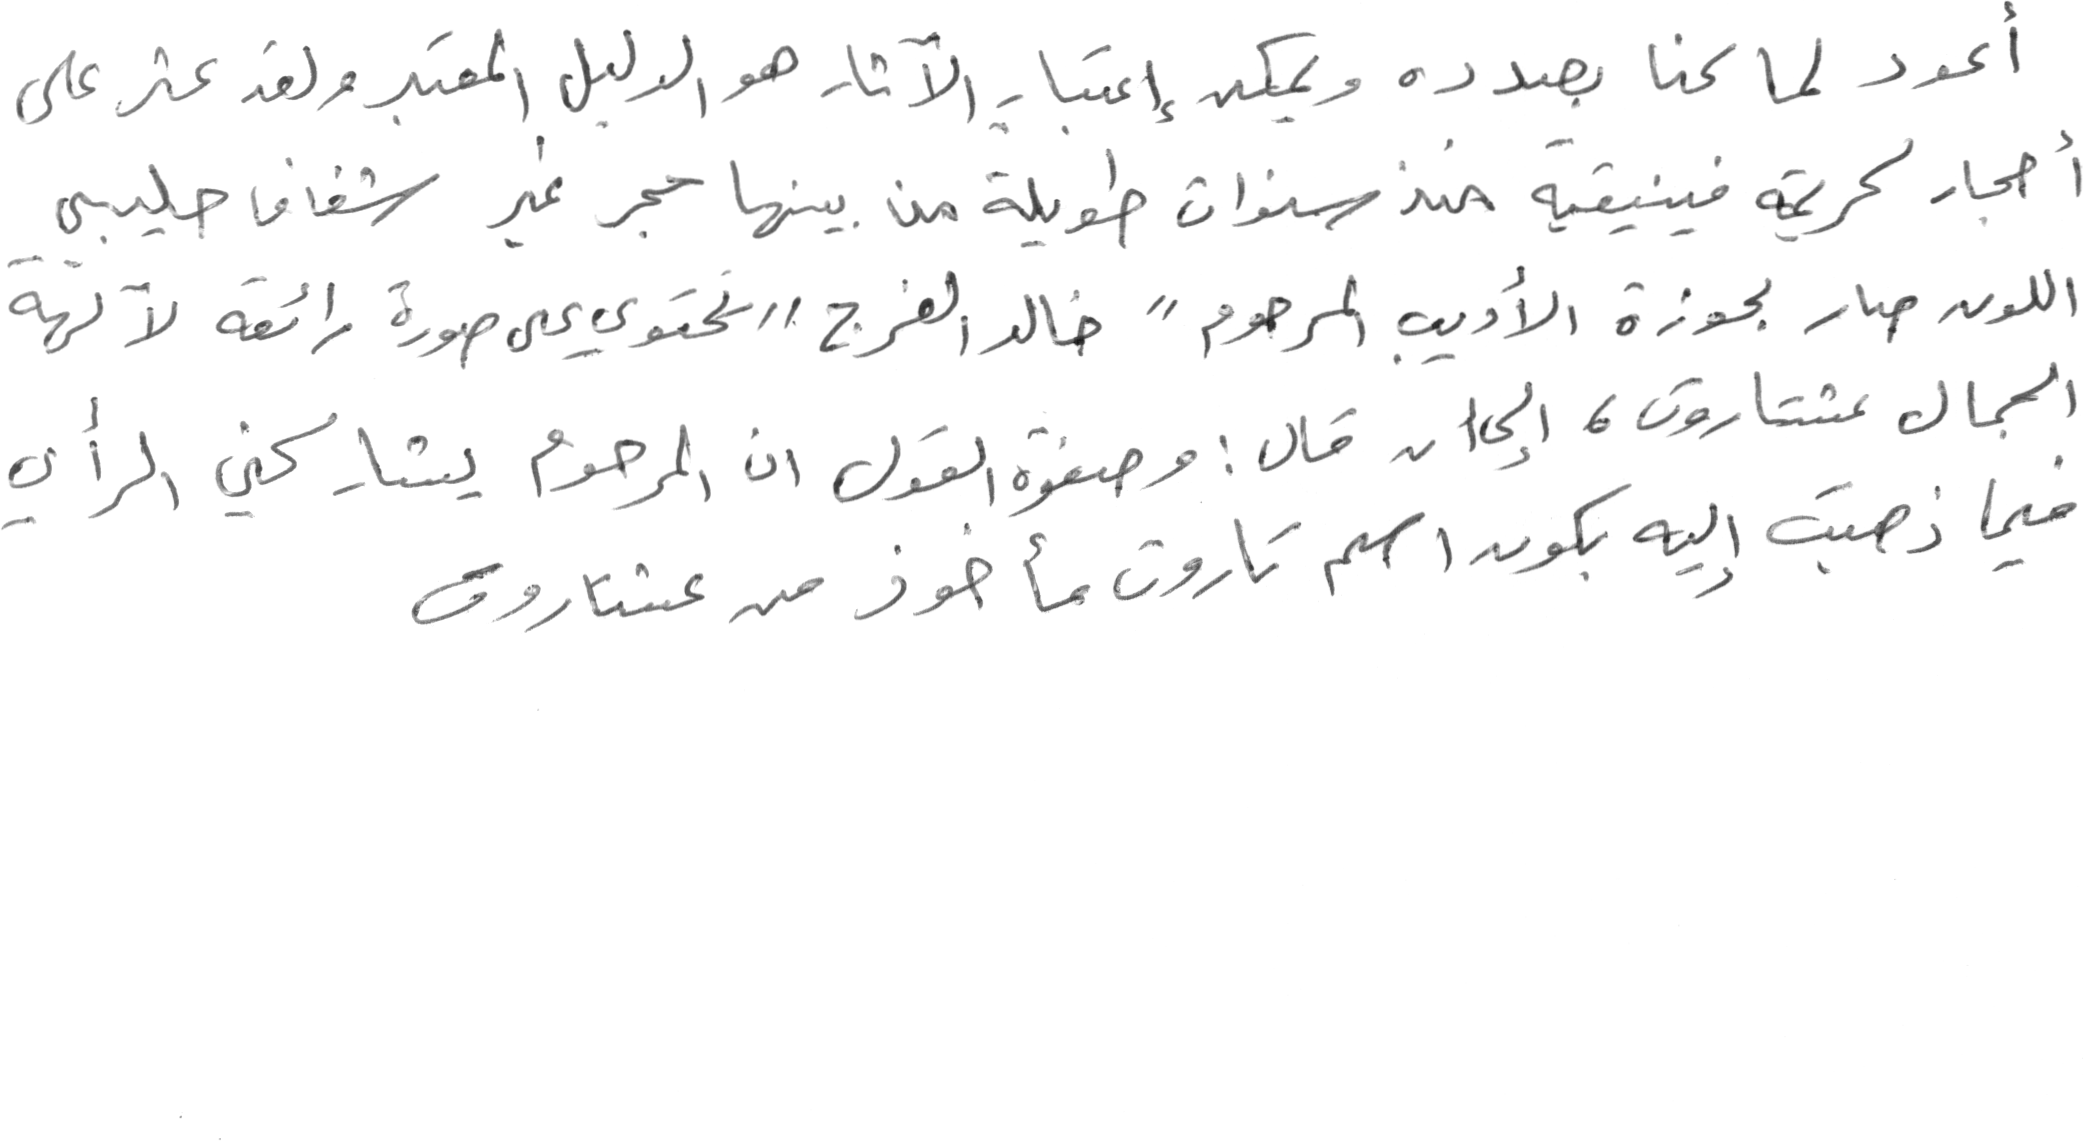 أعود لما نحنا بصدده ويمكن إعتبار الآثار هو الدليل المعتبر ولقد عثر على
أحجار كريمة فينيقية منذ سنوات طويلة من بينها حجر غير شفافا حليبي
اللون صار بحوزة الأديب المرحوم " خالد الفرج " تحتوي على صورة رائعة لآلهة
الجمال عشتاروت ، إلى ان قال : وصفوة القول ان المرحوم يشاركني الرأي
فيما ذهبت إليه بكون اسم تاروت مأخوذ من عشتاروت